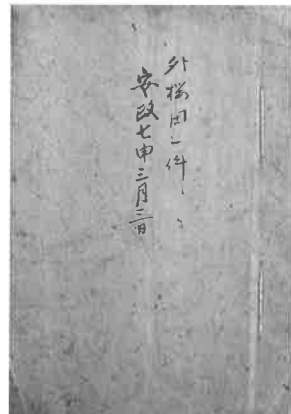 外桜田一件
安政七申三月三日